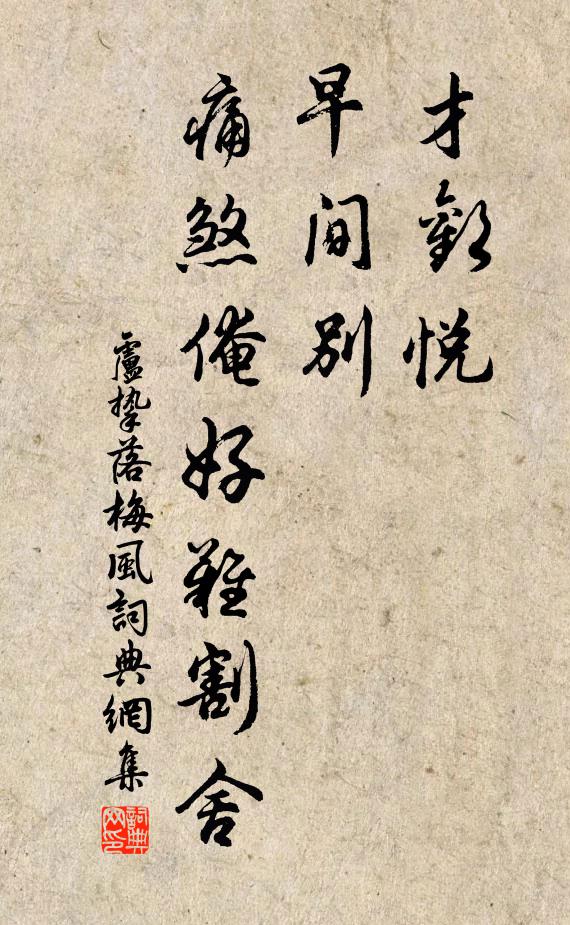 才歡悦
早間别
痛煞俺好難割舍
盧摯落梅風詞典網集
詞典網印